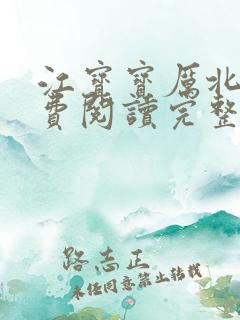 江寶寶厲北
費閱讀完整
路志正
未經同意禁止轉載